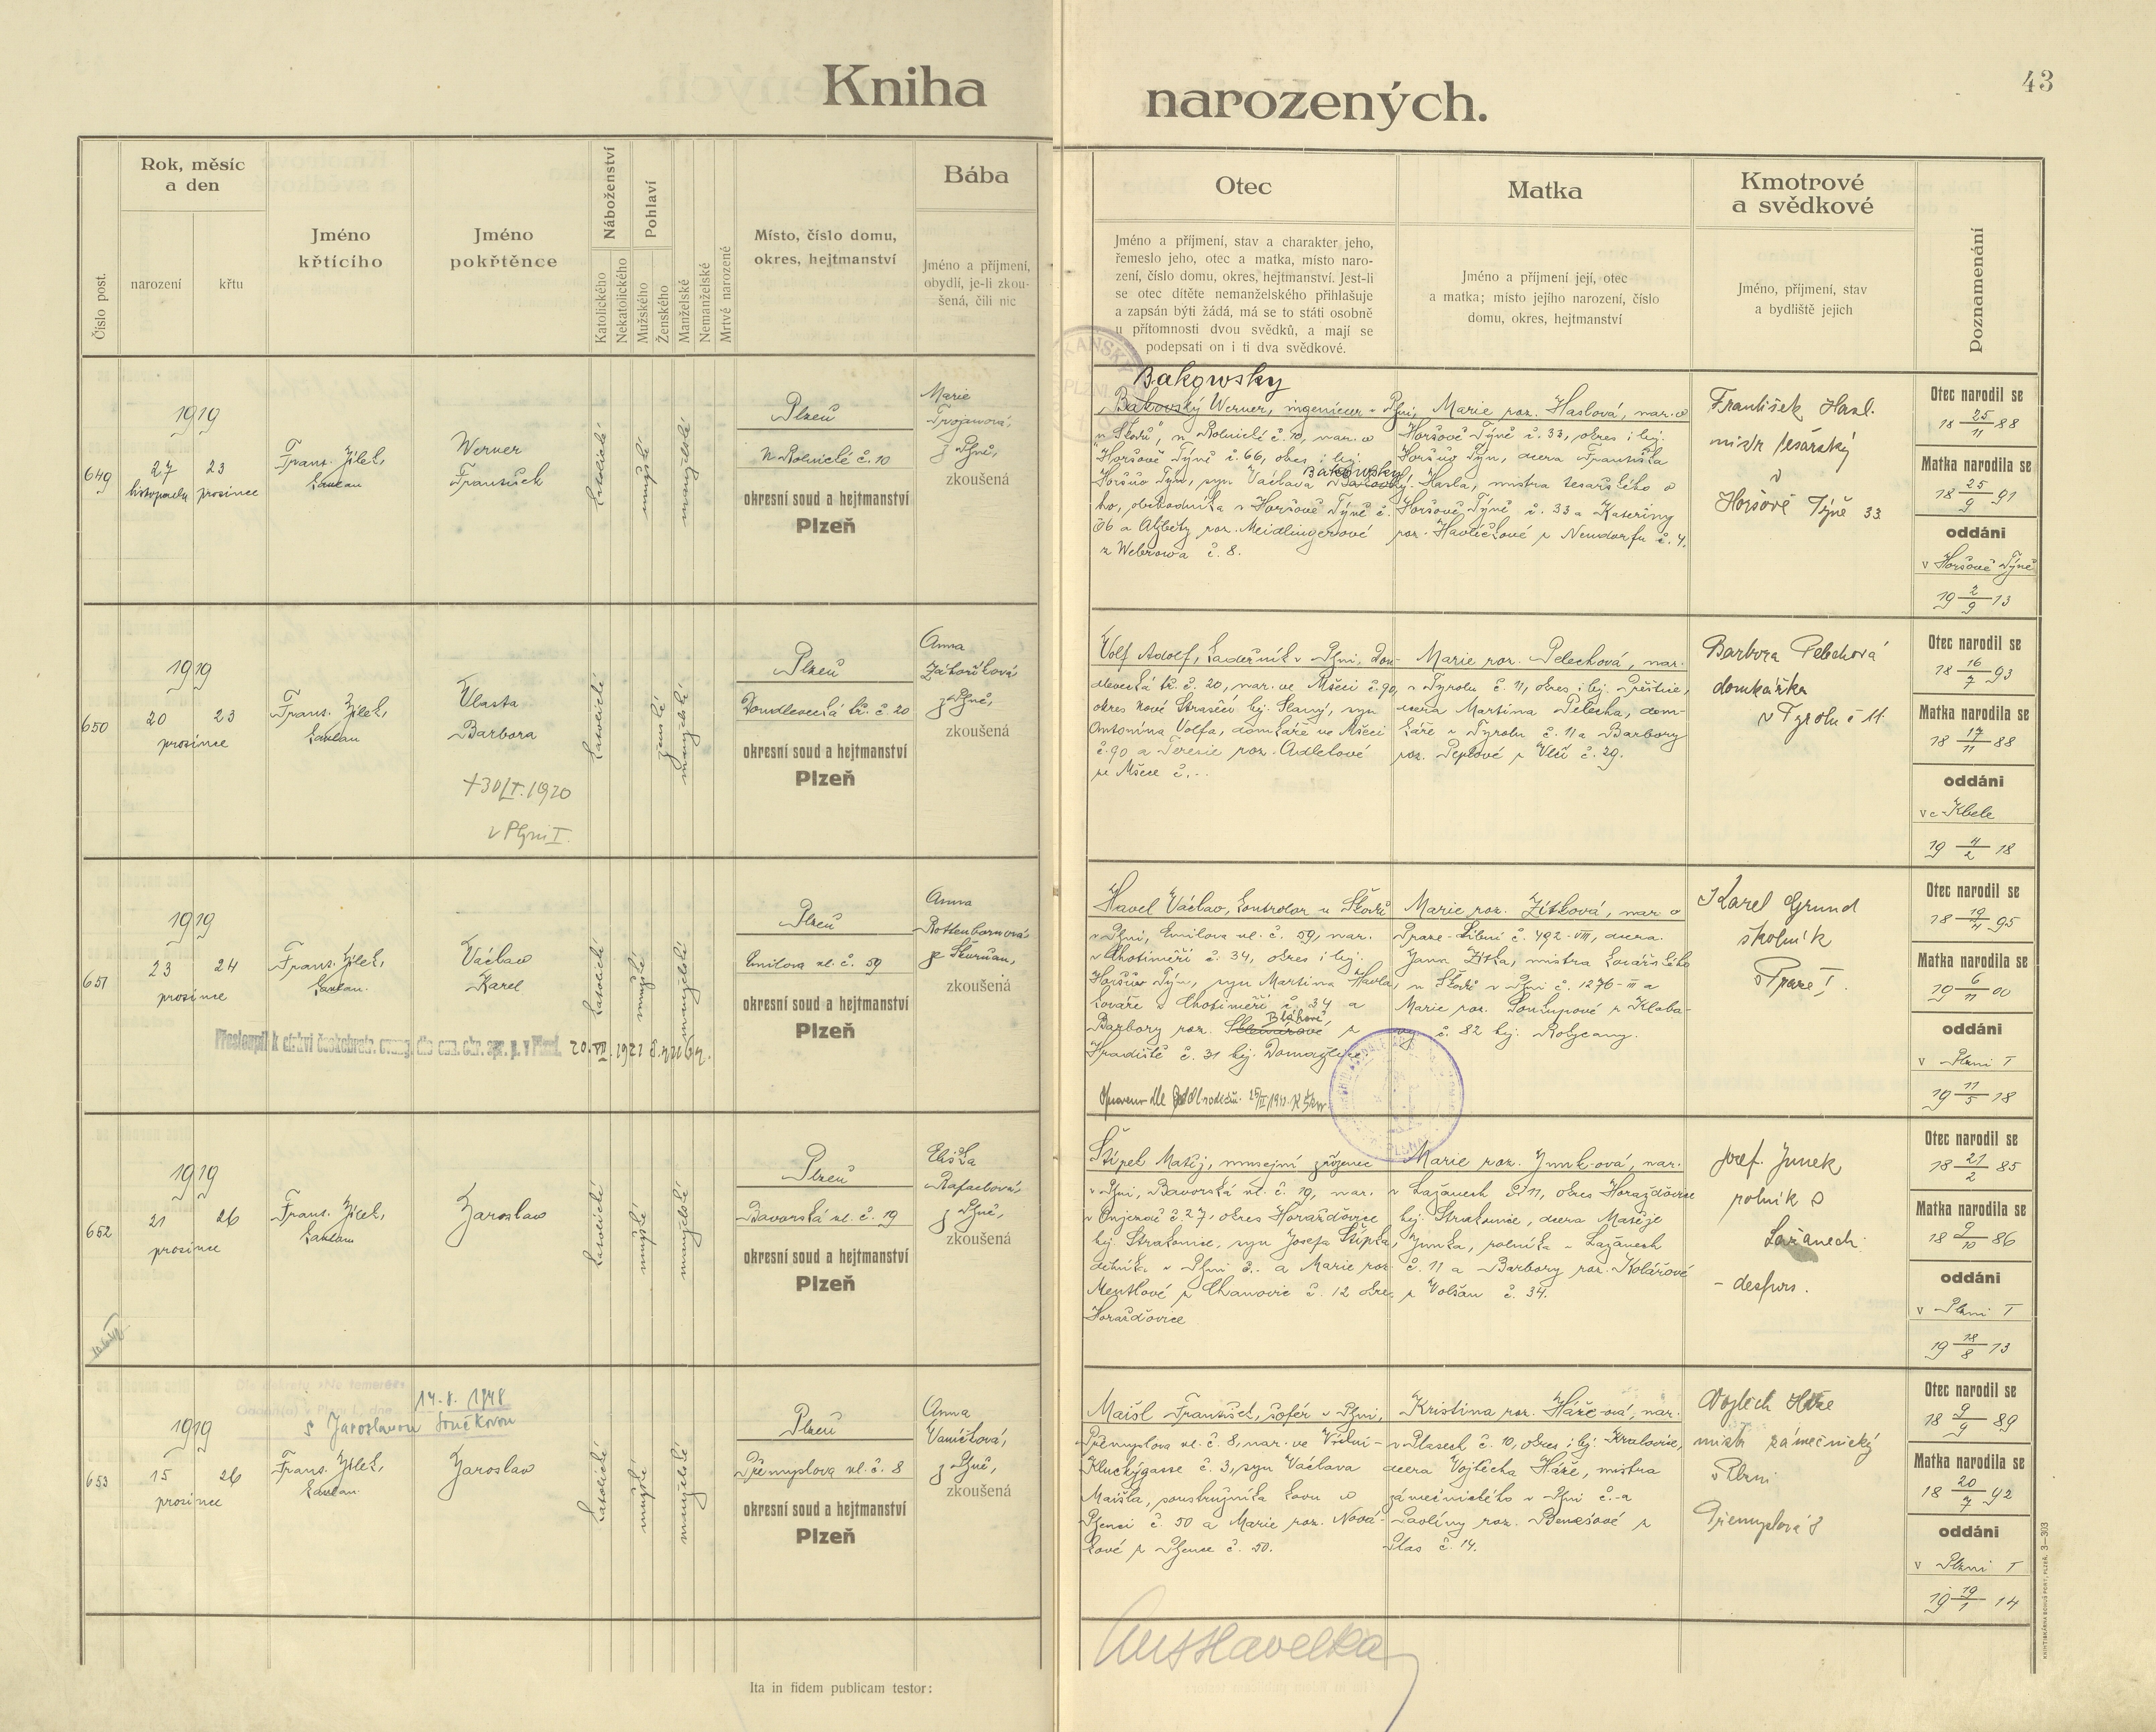 43
Kniha narozených.
Číslo post.
Rok, měsíc
a den
narození
křtu
Jméno
křtícího
Jméno
pokřtěnce
Náboženství
Katolického
Nekatolického
Pohlaví
Mužského
Ženského
Manželské
Nemanželské
Mrtvé narozené
Místo, číslo domu,
okres, hejtmanství
Bába
Jméno a příjmení,
obydlí, je-li zkou-
šená, čili nic
Otec
Jméno a příjmení, stav a charakter jeho,
řemeslo jeho, otec a matka, místo naro-
zení, číslo domu, okres, hejtmanství. Jest-li
se otec dítěte nemanželského přihlašuje
a zapsán býti žádá, má se to státi osobně
u přítomnosti dvou svědků, a mají se
podepsati on i ti dva svědkové.
Matka
Jméno a příjmení její, otec
a matka; místo jejího narození, číslo
domu, okres, hejtmanství
Kmotrové
a svědkové
Jméno, příjmení, stav
a bydliště jejich
Poznamenání
649
1919
27 23
listopadu prosince
Frant. Jílek,
kaplan
Werner
František
katolické
mužské
manželské
Plzeň
N Rolnické č. 10
okresní soud a hejtmanství
Plzeň
Marie
Trojanová,
z Plzně,
zkoušená
Bakowsky
Bakovský Werner, ingenieur v Plzni,
u Škodů, v Rolnické č. 10, nar. v
Horšově Týně č. 66, okres i hej.
Bakowsky
Horšův Týn, syn Václava Bakovské-
ho, obchodníka v Horšově Týně č.
66 a Alžběty roz. Meidlingerové
z Webrowa č. 8.
Marie roz. Haslová, nar. v
Horšově Týně č. 33, okres i hej.
Horšův Týn, dcera Františka
Hasla, mistra tesařského v
Horšově Týně č. 33 a Kateřiny
roz. Havlíčkové z Neudorfu č. 4.
František Hasl.
mistr tesařský
v
Horšově Týně 33
Otec narodil se
18 25/11 88
Matka narodila se
18 25/9 91
oddáni
v Horšově Týně
19 2/9 13
650
1919
20 23
prosince
Frant. Jílek,
kaplan
Vlasta
Barbora
+30/I.1920
v Plzni I.
katolické
ženské
manželské
Plzeň
Doudlevecká tř. č. 20
okresní soud a hejtmanství
Plzeň
Anna
Záhoříková
z Plzně,
zkoušená
Volf Adolf, kadeřník v Plzni, Dou-
dlevecká tř. č. 20, nar. ve Mšeci č. 90,
okres Nové Strašecí hej. Slaný, syn
Antonína Volfa, domkáře ve Mšeci
č. 90 a Terezie roz. Adletové
ze Mšece č. -.
Marie roz. Pelechová, nar.
v Tyrolu č. 11, okres i hej. Přeštice,
dcera Martina Pelecha, dom-
káře v Tyrolu č. 11 a Barbory
roz. Teplové z Vlčí č. 29.
Barbora Pelechová
domkářka
v Tyrolu č 11.
Otec narodil se
18 16/7 93
Matka narodila se
18 17/11 88
oddáni
ve Kbele
19 4/2 18
651
1919
23 24
prosince
Frant. Jílek,
kaplan.
Václav
Karel
Přestoupil k církvi českobratr. evang. dle ozn. okr. spr. p. v Plzni. 20.VII.1921
katolické
mužské
manželské
Plzeň
Emilova ul. č. 59
okresní soud a hejtmanství
Plzeň
Anna
Rottenbornová,
ze Skvrňan,
zkoušená
Havel Václav, kontrolor u Škodů
v Plzni, Emilova ul. č. 59, nar.
v Chotiměři č. 34, okres i hej.
Horšův Týn, syn Martina Havla,
kováře v Chotiměři č. 34 a
Bláhové,
Barbory roz. z
Hradiště č. 31 hej. Domažlice
Marie roz. Zítková, nar. v
Praze-Libni č. 492-VIII, dcera
Jana Zítka, mistra kovářského
u Škodů v Plzni č. 1276-III a
Marie roz. Soukupové z Klaba-
vy č. 82 hej. Rokycany.
Karel Grund
školník
v Praze I.
Otec narodil se
18 19/4 95
Matka narodila se
19 6/11 00
oddáni
v Plzni I
19 11/5 18
652
1919
21 26
prosince
Frant. Jílek,
kaplan
Jaroslav
katolické
mužské
manželské
Plzeň
Bavorská ul. č. 19
okresní soud a hejtmanství
Plzeň
Eliška
Rafaelová,
z Plzně,
zkoušená
Štípek Matěj, musejní zřízenec
v Plzni, Bavorská ul. č. 19, nar.
v Čnjezdě č. 27, okres Horažďovice
hej. Strakonice, syn Josefa Štípka,
dělníka v Plzni č. - a Marie roz.
Mentlové z Chanovic č. 12 okres
Horažďovice
Marie roz. Junk-ová, nar.
v Lažanech č. 11, okres Horažďovice
hej. Strakonice, dcera Matěje
Junka, rolníka v Lažanech
č. 11 a Barbory roz. Kolářové
z Volšan č. 34.
Josef Junek
rolník v
Lažanech
Otec narodil se
18 21/2 85
Matka narodila se
18 9/10 86
oddáni
v Plzni I
19 18/8 13
653
14.8. 1948
s Jaroslavou Součkovou
1919
15 26
prosince
Frant. Jílek,
kaplan.
Jaroslav
katolické
mužské
manželské
Plzeň
Přemyslova ul. č. 8
okresní soud a hejtmanství
Plzeň
Anna
Vaníčková,
z Plzně,
zkoušená
Maišl František, šofér v Plzni,
Přemyslova ul. č. 8, nar. ve Vídni-
Kluckýgasse č. 3, syn Václava
Maišla, soustružníka kovu v
Plzenci č. 50 a Marie roz. Nová-
kové z Plzence č. 50.
Kristina roz. Háže-ová, nar.
v Plasech č. 10, okres i hej. Kralovice,
dcera Vojtěcha Háže, mistra
zámečnického v Plzni č. - a
Pavlíny roz. Benešové z
Plas č. 14.
Vojtěch Háže
mistr zámečnický
v Plzni
Přemyslova 8
Otec narodil se
18 9/9 89
Matka narodila se
18 20/7 92
oddáni
v Plzni I
19 19/1 14
Ita in fidem publicam testor: